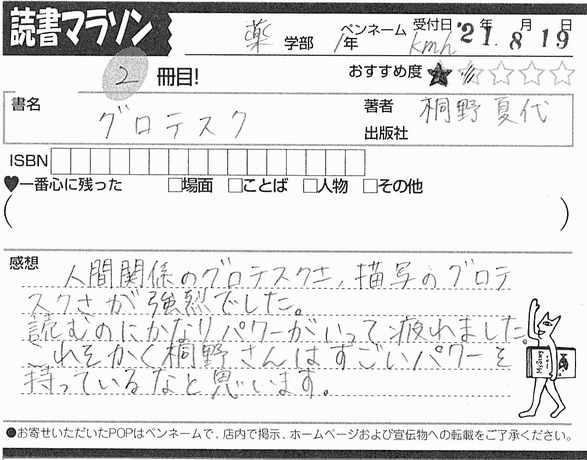 読書マラソン
薬 学部 1年 ペンネーム kmh 受付日 '21年 8月 19日
2 冊目! おすすめ度 ★☆☆☆☆
書名 グロテスク 著者 桐野夏代
出版社
ISBN
♥一番心に残った □場面 □ことば □人物 □その他
( )
感想
人間関係のグロテスクさ、描写のグロテ
スクさが強烈でした。
読むのにかなりパワーがいって疲れました。
これそかく桐野さんはすごいパワーを
持っているなと思います。
●お寄せいただいたPOPはペンネームで、店内で掲示、ホームページおよび宣伝物への転載をご了承ください。